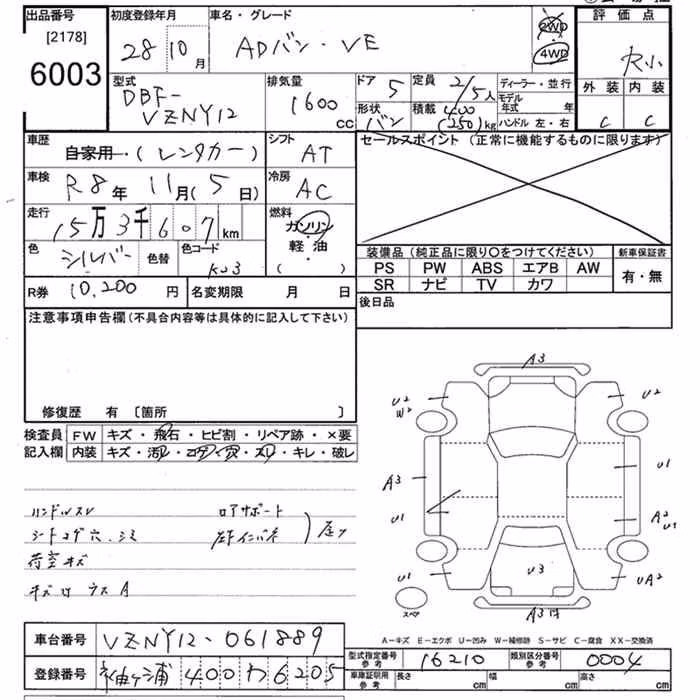 出品番号
[2178]
6003
初度登録年月
28 10 月
車名・グレード
ADバン・VE
2WD
4WD
評価点
型式
DBF-
VZNY12
排気量
1600
cc
ドア
5
定員
2/5人
形状
バン
積載
400
(250)kg
ディーラー・並行
モデル
年式 年
ハンドル 左・右
外装 内装
C C
車歴
自家用・(レンタカー)
シフト
AT
車検
R8年11月(5日)
冷房
AC
走行
15万3千607km
燃料
ガソリン
・
軽油
( )
色
シルバー
色替
色コード
K23
R券 10,200 円
名変期限 月 日
セールスポイント(正常に機能するものに限ります)
装備品(純正品に限り〇をつけてください)
新車保証書
PS PW ABS エアB AW
SR ナビ TV カワ
有・無
後日品
注意事項申告欄(不具合内容等は具体的に記入して下さい)
修復歴 有 〔箇所 〕
検査員
記入欄
FW キズ・飛石・ヒビ割・リペア跡・×要
内装 キズ・汚れ・コゲ・穴・スレ・キレ・破レ
ハンドルスレ
シートコゲ穴、シミ
荷室キズ
キズは ウスA
ロアサポート
A3
U2
W2
U2
A3
U1
U1
A2
U1
U3
U1
UA2
スペア
A3
A-キズ E-エクボ U-凹み W-補修跡 S-サビ C-腐食 XX-交換済
車台番号 VZNY12-061889
登録番号 袖ヶ浦 400 わ 6205
型式指定番号
参考
16210
類別区分番号
参考
0004
車庫証明用
参考
長さ cm
幅 cm
高さ cm